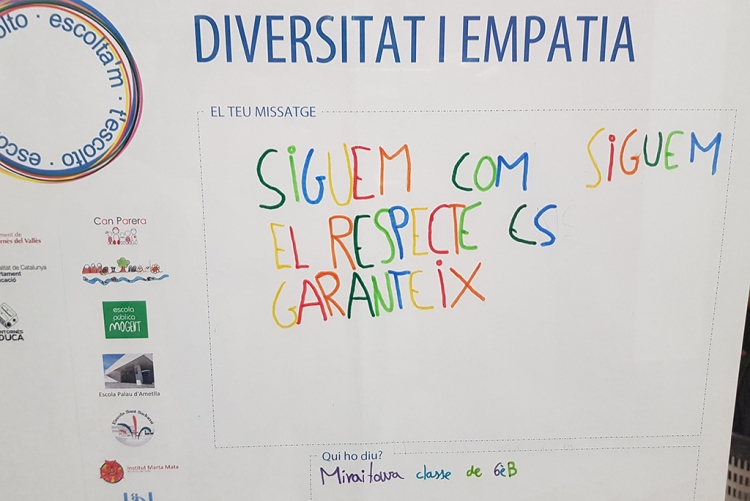 escolto · escolta'm · t'escolto · esco
DIVERSITAT I EMPATIA
EL TEU MISSATGE
SiGUEM COM SiGUEM
EL RESPECTE ES
GARANTEiX
ment de
rnès del Vallès
Can Parera
litat de Catalunya
artament
ucació
NTORNES
DUCA
escola
pública
MOGÜIT
Escola Palau d'Ametlla
Institut Marta Mata
Qui ho diu?
classe de 6èB